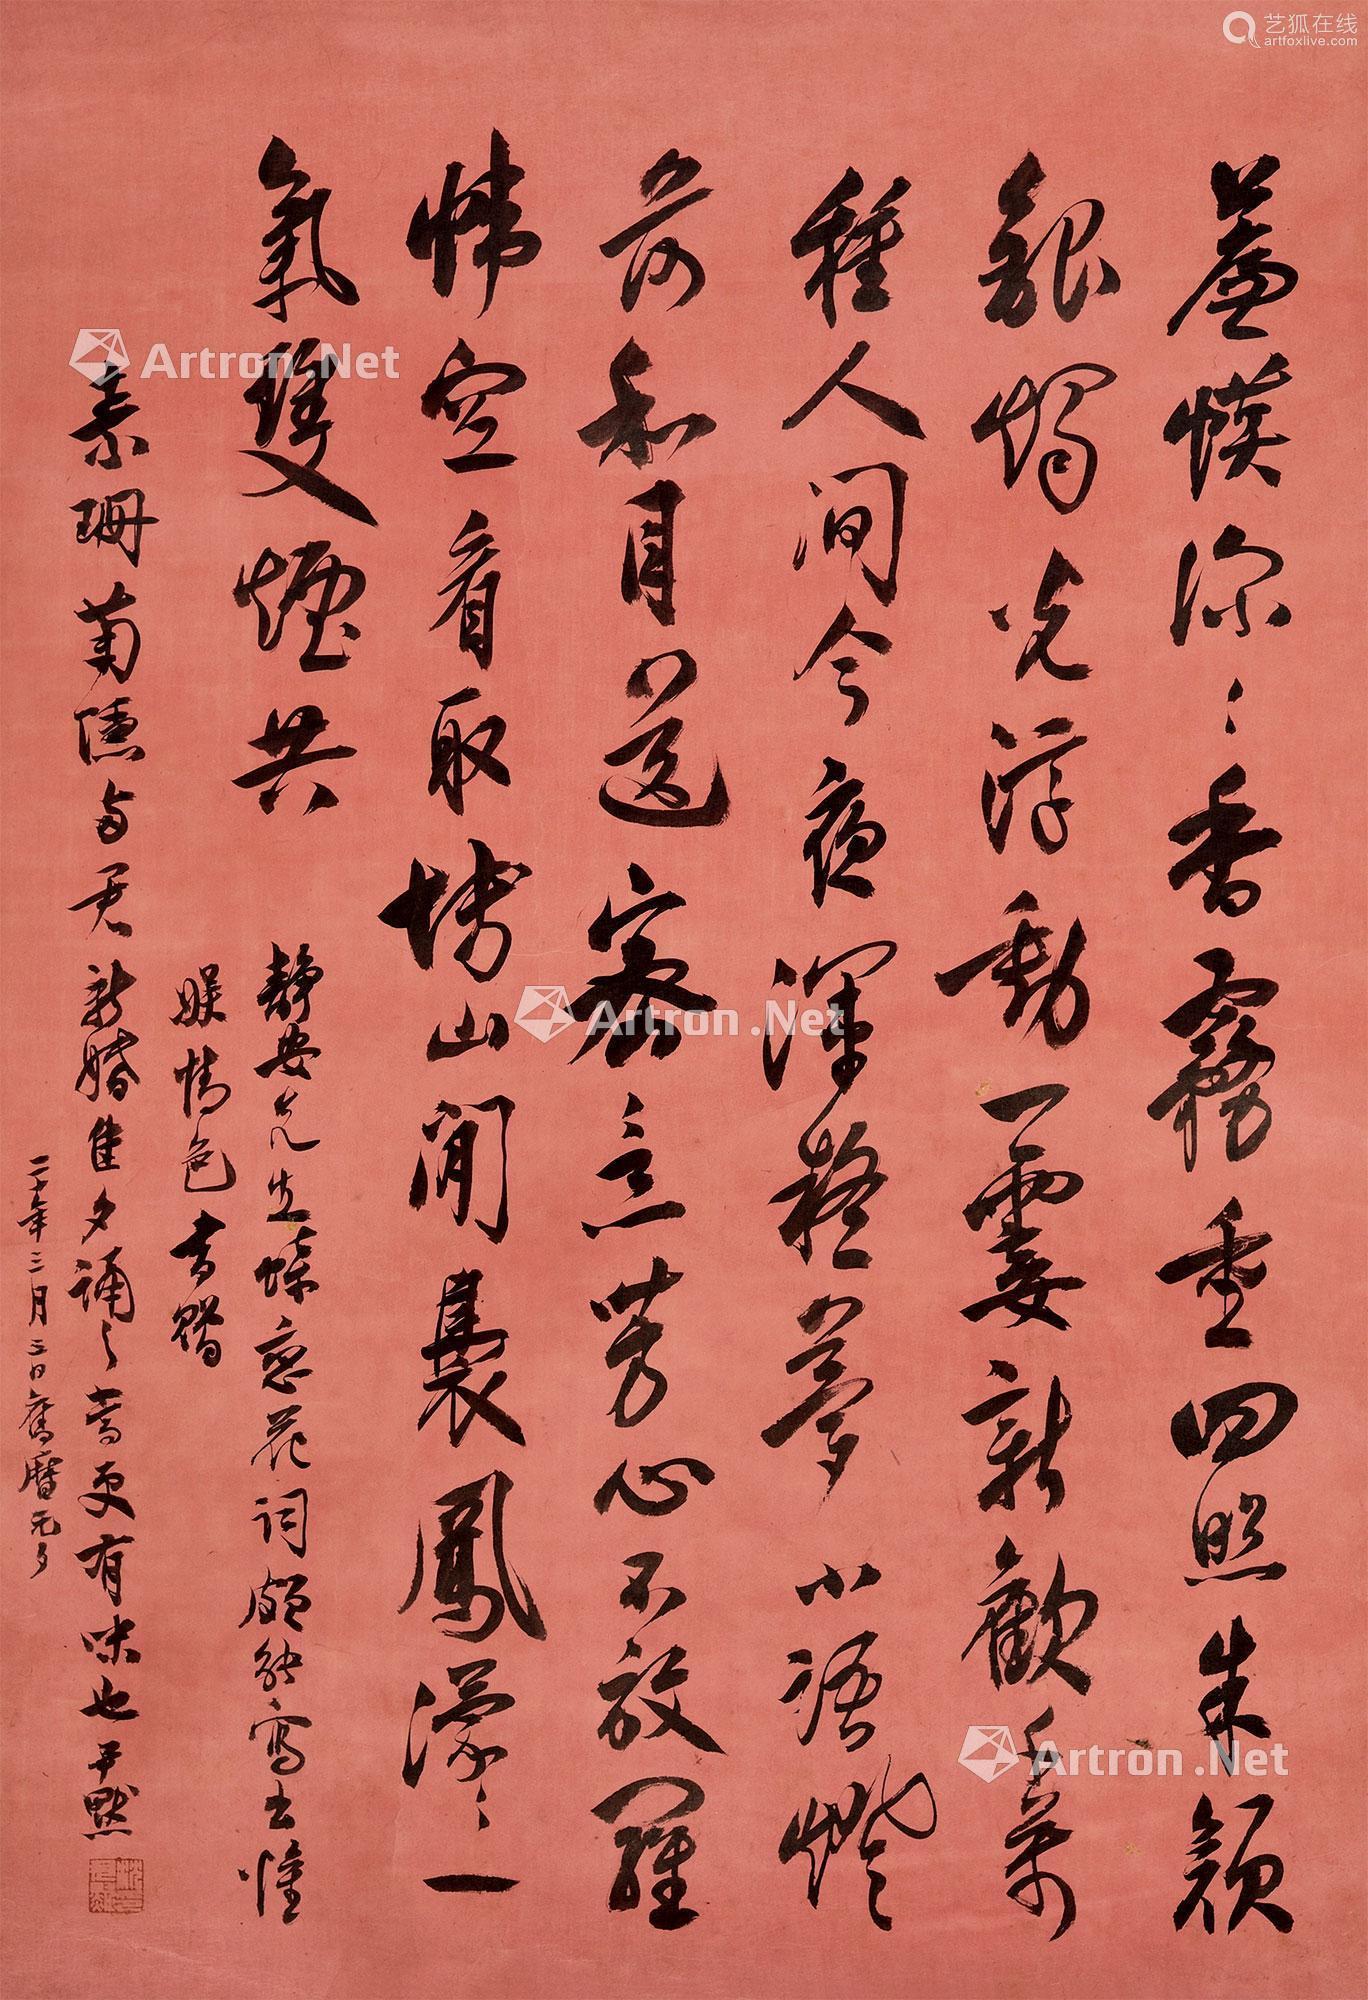 簾幙深〻香霧重四照朱顔
銀燭光浮動一霎新歡千萬
種人間今夜渾疑夢小語燈
前和目送密意芳心不放羅
幃空看取博山閒裊鳳濛〻一
氣雙煙共
靜安先生蝶戀花詞頗能寫出懽
娛情色書贈
素珊菊隱两君新婚佳夕誦之當更有味也尹默
二十年三月三日舊曆元夕
艺狐在线
artfoxlive.com
Artron.Net
Artron.Net
Artron.Net